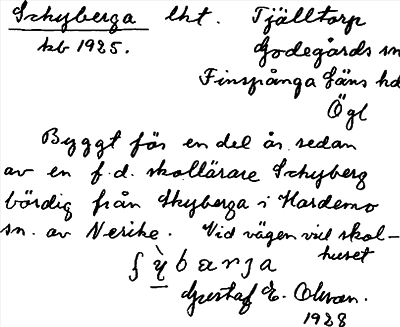 Skyberga lht. Tjälltorp
kb 1925. Godegårds sn
Finspånga läns hd
Ögl
Byggt för en del år sedan
av en f.d. skollärare Skyberg
bördig från Skyberga i Hardemo
sn. av Nerike. Vid vägen vid skol-
huset
ʃỳbarja
Gustaf E. Olsson.
1928